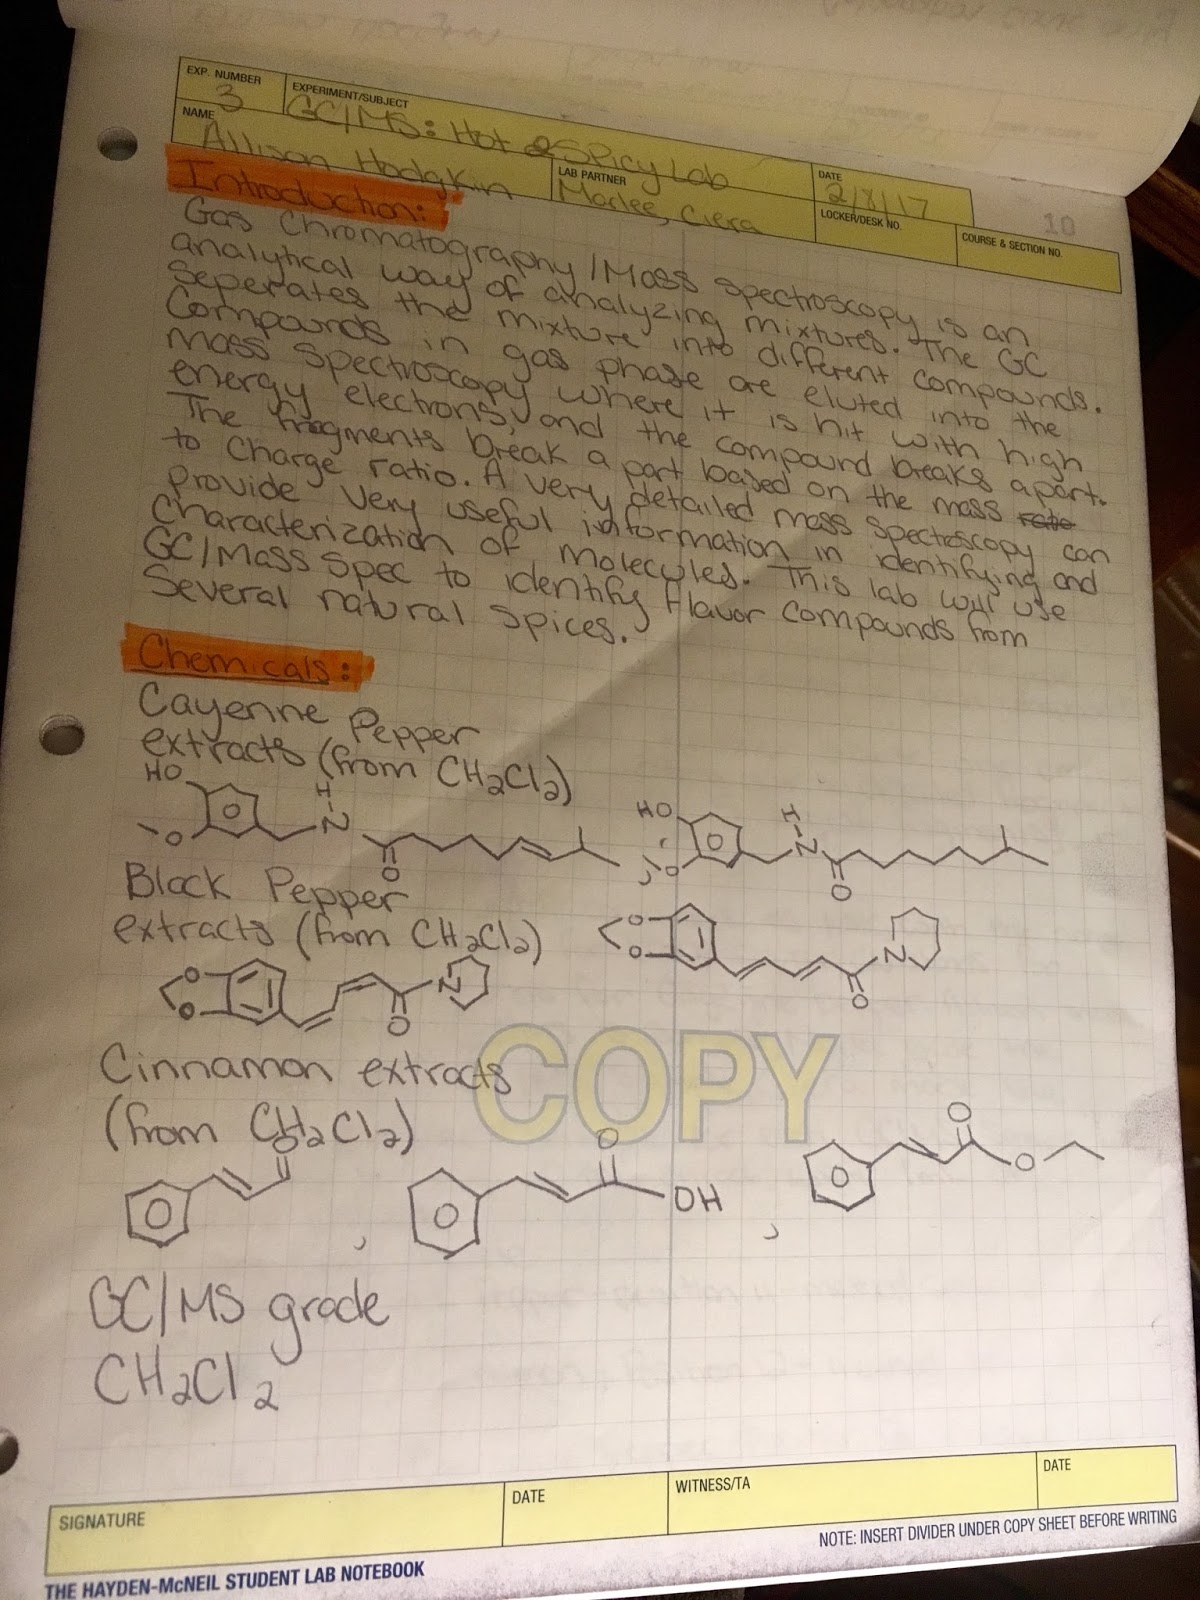 EXP. NUMBER
3
EXPERIMENT/SUBJECT
GC/MS: Hot & Spicy Lab
DATE
2/8/17
10
NAME
Allison Hodgkin
LAB PARTNER
Marlee, Ciera
LOCKER/DESK NO.
COURSE & SECTION NO.
Introduction:
Gas Chromatography/Mass spectroscopy is an
analytical way of analyzing mixtures. The GC
seperates the mixture into different compounds.
Compounds in gas phase are eluted into the
mass spectroscopy where it is hit with high
energy electrons, and the compound breaks apart.
The fragments break a part based on the mass rate
to charge ratio. A very detailed mass spectroscopy can
provide very useful information in identifying and
Characterization of molecules. This lab will use
GC/Mass Spec to identify flavor compounds from
Several natural spices.
Chemicals:
Cayenne Pepper
extracts (from CH2Cl2)
HO
H
N
O
O
,
HO
H
N
O
O
Black Pepper
extracts (from CH2Cl2)
O
O
N
O
,
O
O
N
O
Cinnamon extracts
(from CH2Cl2)
COPY
O
,
O
OH
,
O
O
GC/MS grade
CH2Cl2
SIGNATURE
DATE
WITNESS/TA
DATE
THE HAYDEN-McNEIL STUDENT LAB NOTEBOOK
NOTE: INSERT DIVIDER UNDER COPY SHEET BEFORE WRITING